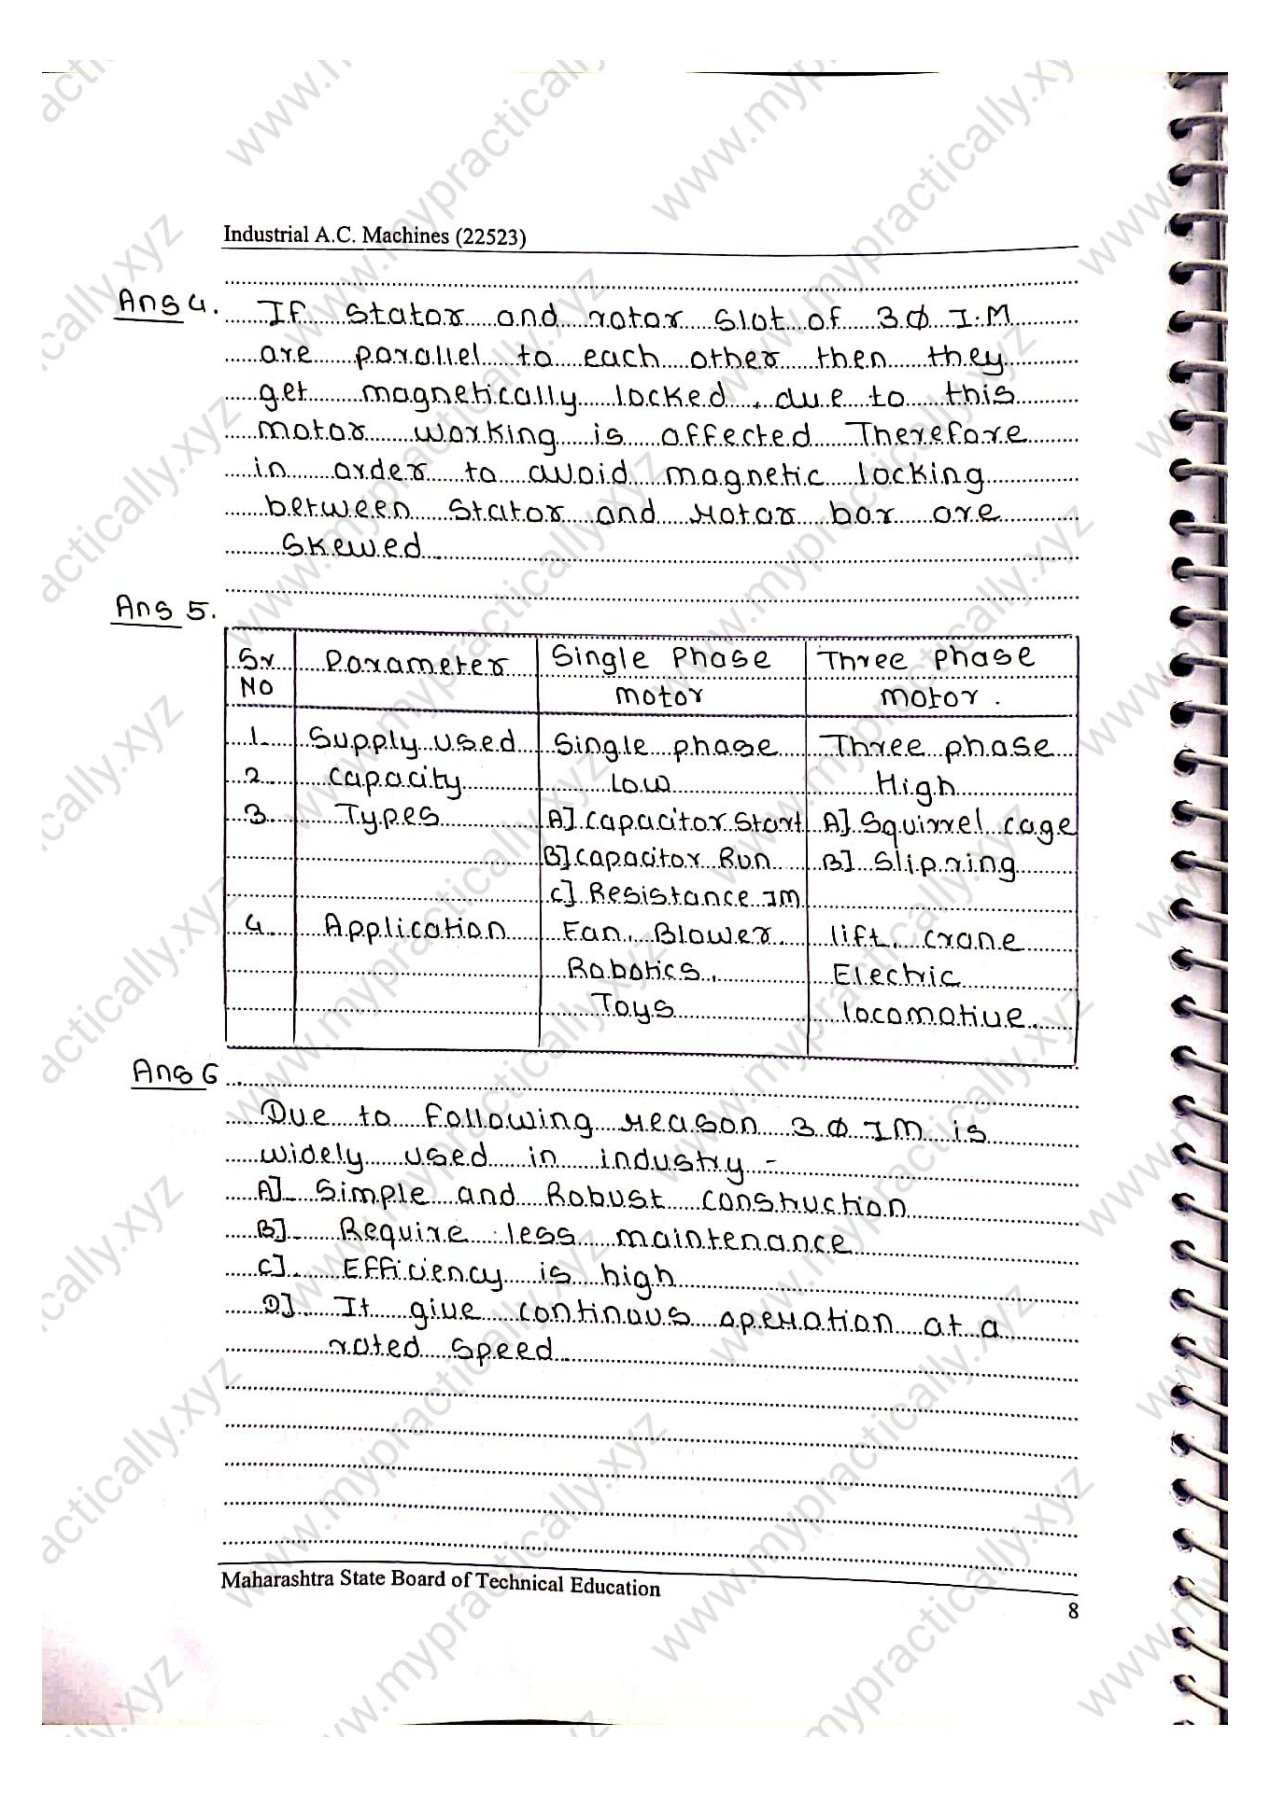 Industrial A.C. Machines (22523)
Ans 4. If Stator and rotor Slot of 3Φ I.M
are parallel to each other then they
get magnetically locked, due to this
motor working is affected Therefore
in order to avoid magnetic locking
between Stator and rotor bar are
Skewed
Ans 5.
Sr Parameter Single Phase Three phase
NO motor motor.
1 Supply used Single phase Three phase
2 capacity Low High
3 Types A] capacitor Start A] Squirrel cage
B] capacitor Run B] Slip ring
c] Resistance IM
4 Application Fan, Blower lift, crane
Robotics, Electric
Toys locomotive
Ans 6
Due to following reason 3Φ IM is
widely used in industry -
A] Simple and Robust construction
B] Require less maintenance
c] Efficiency is high
D] It give continous operation at a
rated speed
Maharashtra State Board of Technical Education
8
www.mypractically.xyz